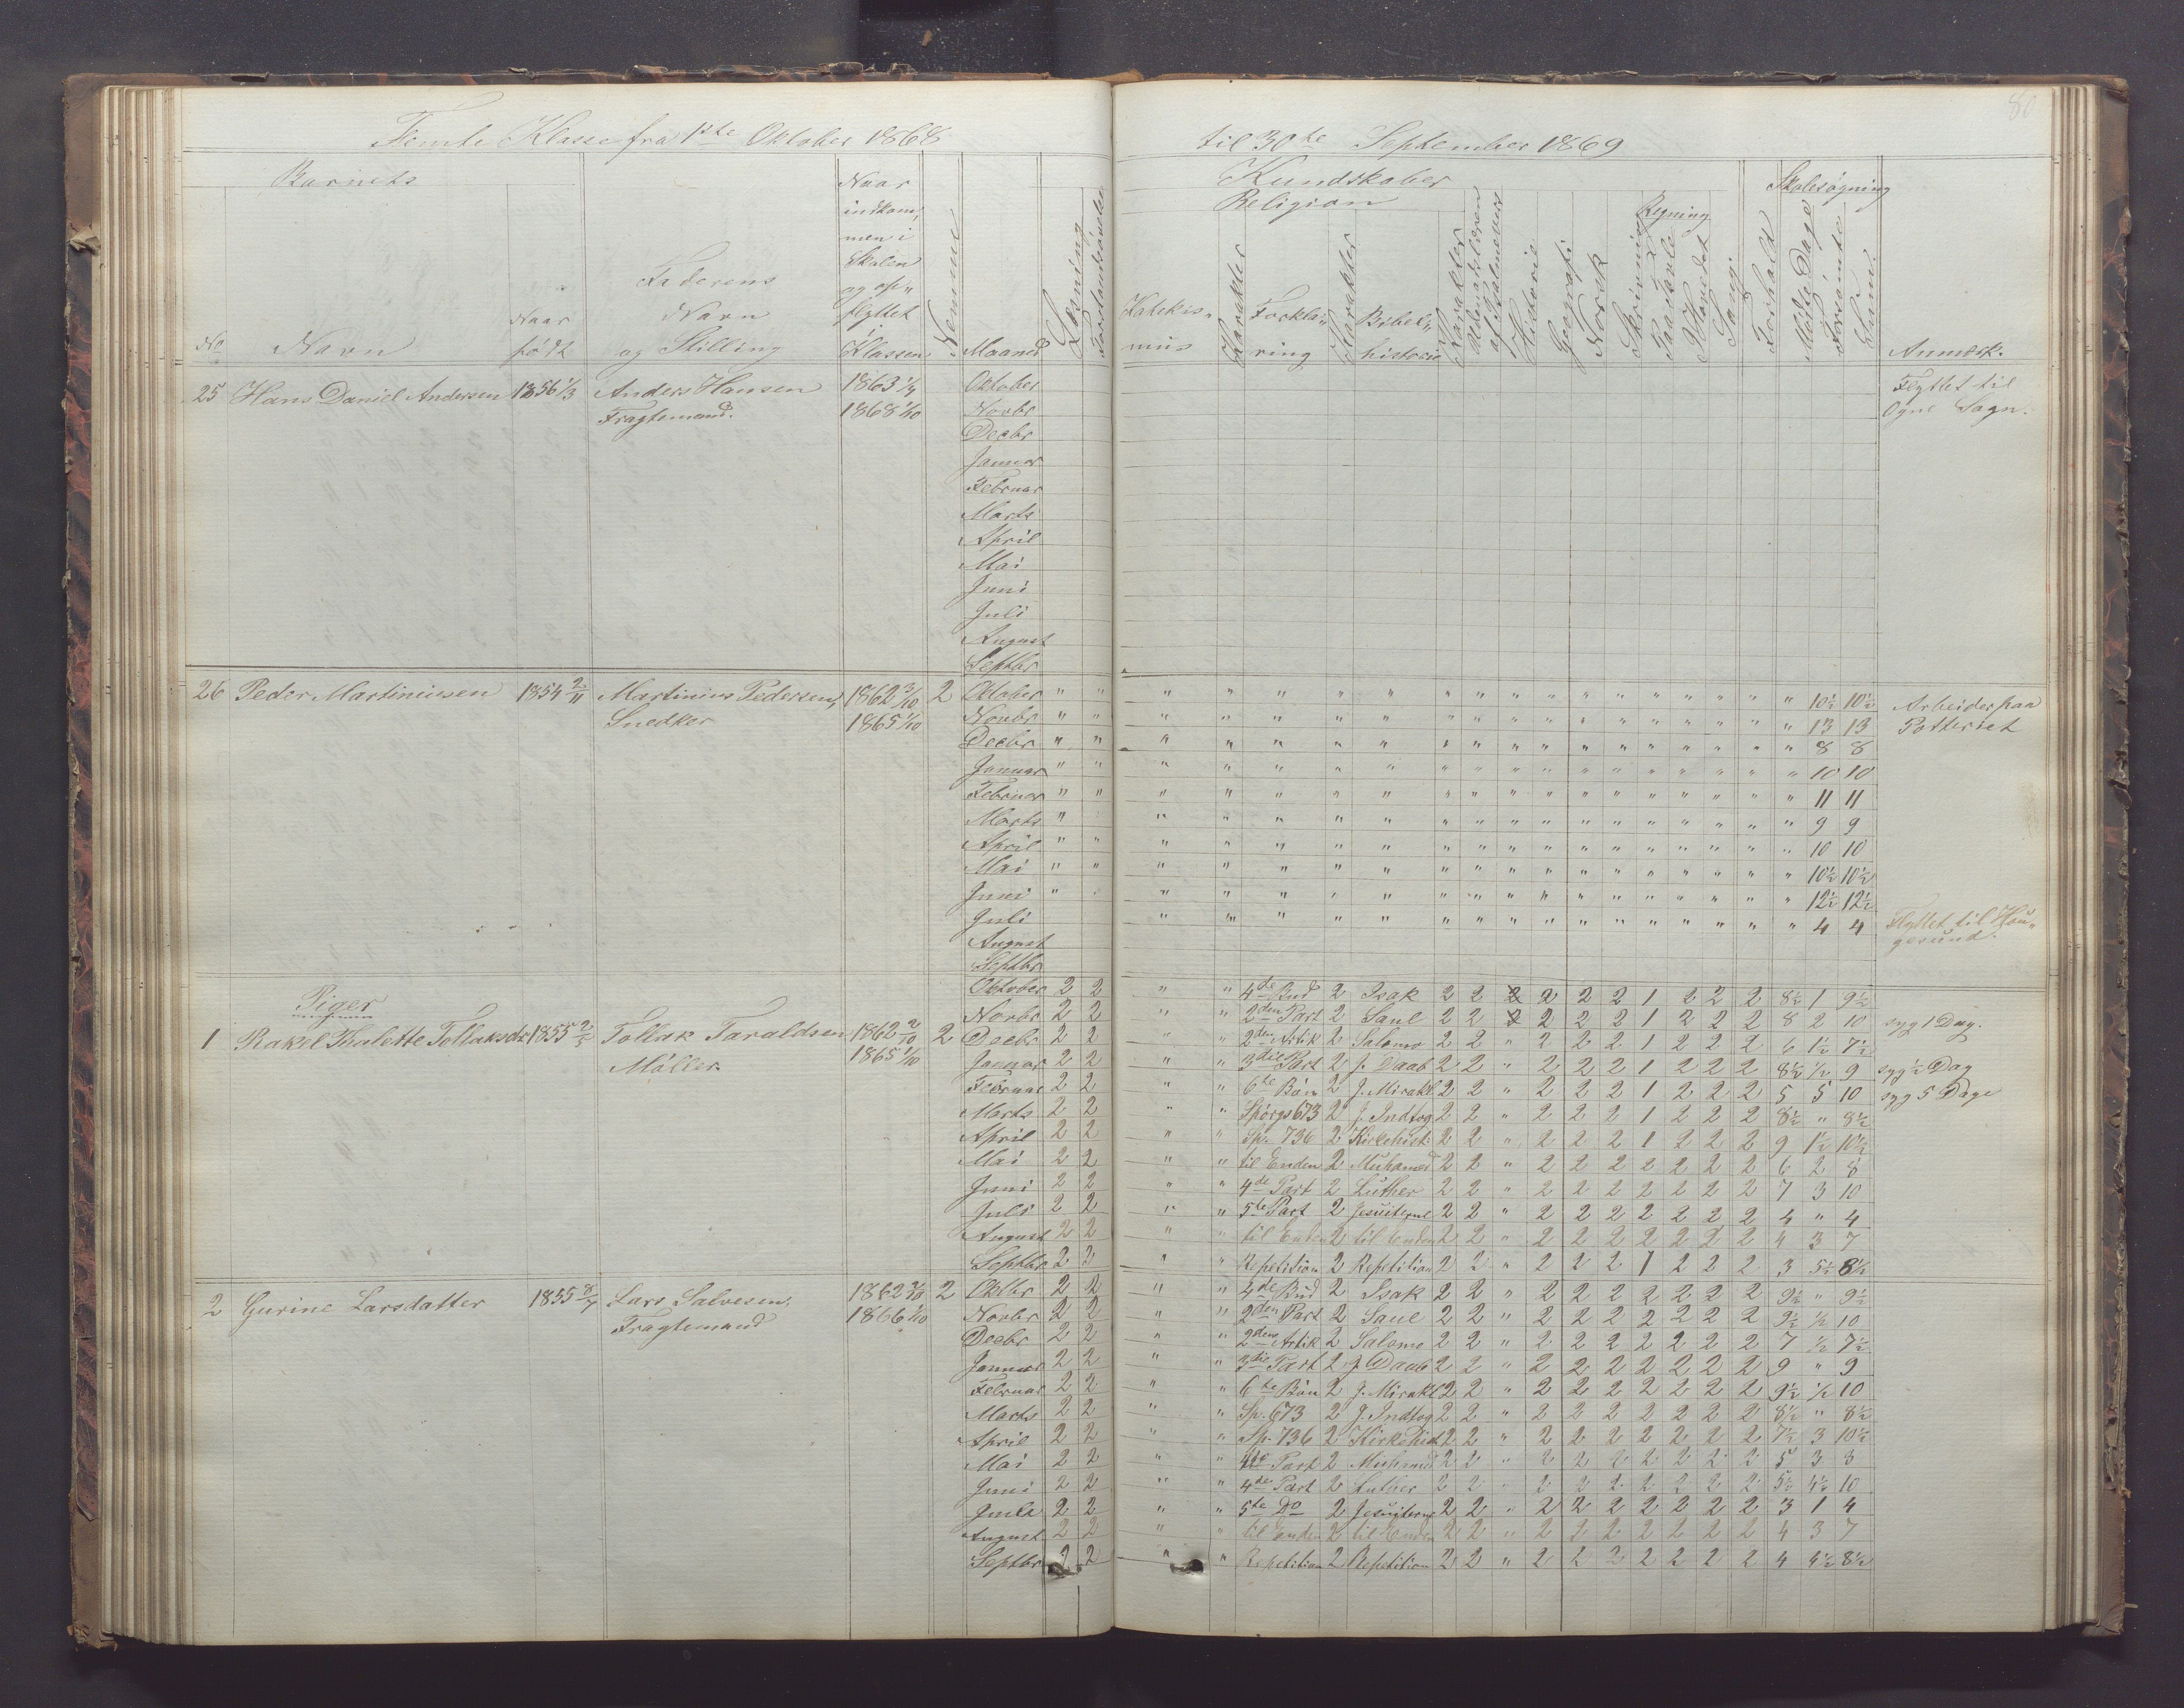 80
Femte Klasse fra 1ste Oktober 1868 til 30te September 1869
Barnets
No
Navn
Naar født
Faderens Navn og Stilling
Naar indkom, men i Skolen og op" flyttet i Klassen
Nemme
Maaned
Læsning
Forstandsøvelse
Kundskaber
Religion
Katekis" mus
Karakter
Forkla" ring
Karakter
Bibel" historie
Karakter
Udenadslæren af Salmevers
Historie
Geografi
Norsk
Skrivning
Regning
Paa Tavle
I Hovedet
Sang
Forhold
Skolesøgning
Mødte Dage
Forsømte
Sum
Anmærk.
25 Hans Daniel Andersen 1856 1/3 Anders Hansen 1863 1/4 Oktober Flyttet til
Fragtemand. 1868 1/10 Novbr Ogne Sogn.
Decbr
Januar
Februar
Marts
April
Mai
Juni
Juli
August
Septbr
26 Peder Martiniussen 1854 2/11 Martinius Pedersen, 1862 3/10 2 Oktober " " " " " " " " " " " " " " " " " " " 10½ 10½ Arbeider paa
Snedker 1865 1/10 Novbr " " " " " " " " " " " " " " " " " " " 13 13 Potteriet
Decbr " " " " " " " " " " " " " " " " " " " 8 8
Januar " " " " " " " " " " " " " " " " " " " 10 10
Februar " " " " " " " " " " " " " " " " " " " 11 11
Marts " " " " " " " " " " " " " " " " " " 9 9
April " " " " " " " " " " " " " " " " " " " 10 10
Mai " " " " " " " " " " " " " " " " " " " 10½ 10½
Juni " " " " " " " " " " " " " " " " " " " 12½ 12½
Juli " " " " " " " " " " " " " " " " " 4 4 Flyttet til Hau"
August gesund.
Septbr
Piger
Oktober 2 2 " " 4de Bud 2 Isak 2 2 2 2 2 2 1 2 2 2 8½ 1 9½
Novbr 2 2 " " 2den Part 2 Saul 2 2 2 2 2 2 1 2 2 2 8 2 10 syg 1 Dag.
1 Rakel Thalette Tollaksdr 1855 2/5 Tollak Taraldsen 1862 2/10 2 Decbr 2 2 " " 2den Artik 2 Salomo 2 2 " 2 2 2 1 2 2 2 6 1½ 7½
Møller 1865 1/10 Januar 2 2 " " 3die Part 2 J. Daab 2 2 " 2 2 2 1 2 2 2 8½ ½ 9 syg ½ Dag
Februar 2 2 " " 6te Bøn 2 J. Mirakl 2 2 " 2 2 2 1 2 2 2 5 5 10 syg 5 Dage
Marts 2 2 " " Spørgs 673 2 J. Indtog 2 2 " 2 2 2 1 2 2 2 8½ " 8½
April 2 2 " " Sp. 736 2 Kirkehist. 2 2 " 2 2 2 1 2 2 2 9 1½ 10½
Mai 2 2 " " til Enden 2 Muhamed 2 2 " 2 2 2 2 2 2 2 6 2 8
Juni 2 2 " " 4de Part 2 Luther 2 2 " 2 2 2 2 2 2 2 7 3 10
Juli 2 2 " " 5te Part 2 Jesuiterne 2 2 " 2 2 2 2 2 2 2 4 " 4
August 2 2 " " til Enden 2 til Enden 2 2 " 2 2 2 2 2 2 2 4 3 7
Septbr 2 2 " " Repetition 2 Repetition 2 2 " 2 2 2 1 2 2 2 3 5½ 8½
2 Gurine Larsdatter 1855 8/7 Lars Salvesen, 1862 2/10 2 Oktbr 2 2 " " 4de Bud 2 Isak 2 2 " 2 2 2 2 2 2 2 9½ " 9½
Fragtemand 1866 1/10 Novbr 2 2 " " 2den Part 2 Saul 2 2 " 2 2 2 2 2 2 2 9½ ½ 10
Decbr 2 2 " " 2den Artik 2 Salomo 2 2 " 2 2 2 2 2 2 2 7 ½ 7½
Januar 2 2 " " 3die Part 2 J. Daab 2 2 " 2 2 2 2 2 2 2 9 " 9
Februar 2 2 " " 6te Bøn 2 J. Mirakl 2 2 " 2 2 2 2 2 2 2 9½ ½ 10
Marts 2 2 " " Sp. 673 2 J. Indtog 2 2 " 2 2 2 2 2 2 2 8½ " 8½
April 2 2 " " Sp. 736 2 Kirkehist 2 2 " 2 2 2 2 2 2 2 7½ 3 10½
Mai 2 2 " " Part 2 Muhamed 2 2 " 2 2 2 2 2 2 2 5 3 8
Juni 2 2 " " 4de Part 2 Luther 2 2 " 2 2 2 2 2 2 2 5½ 4½ 10
Juli 2 2 " " 5te Do 2 Jesuiterne 2 2 " 2 2 2 2 2 2 2 3 1 4
August 2 2 " " til Enden 2 til Enden 2 2 " 2 2 2 2 2 2 2 4 3 7
Septbr 2 2 " " Repetition 2 Repetition 2 2 " 2 2 2 2 2 2 2 4 4½ 8½